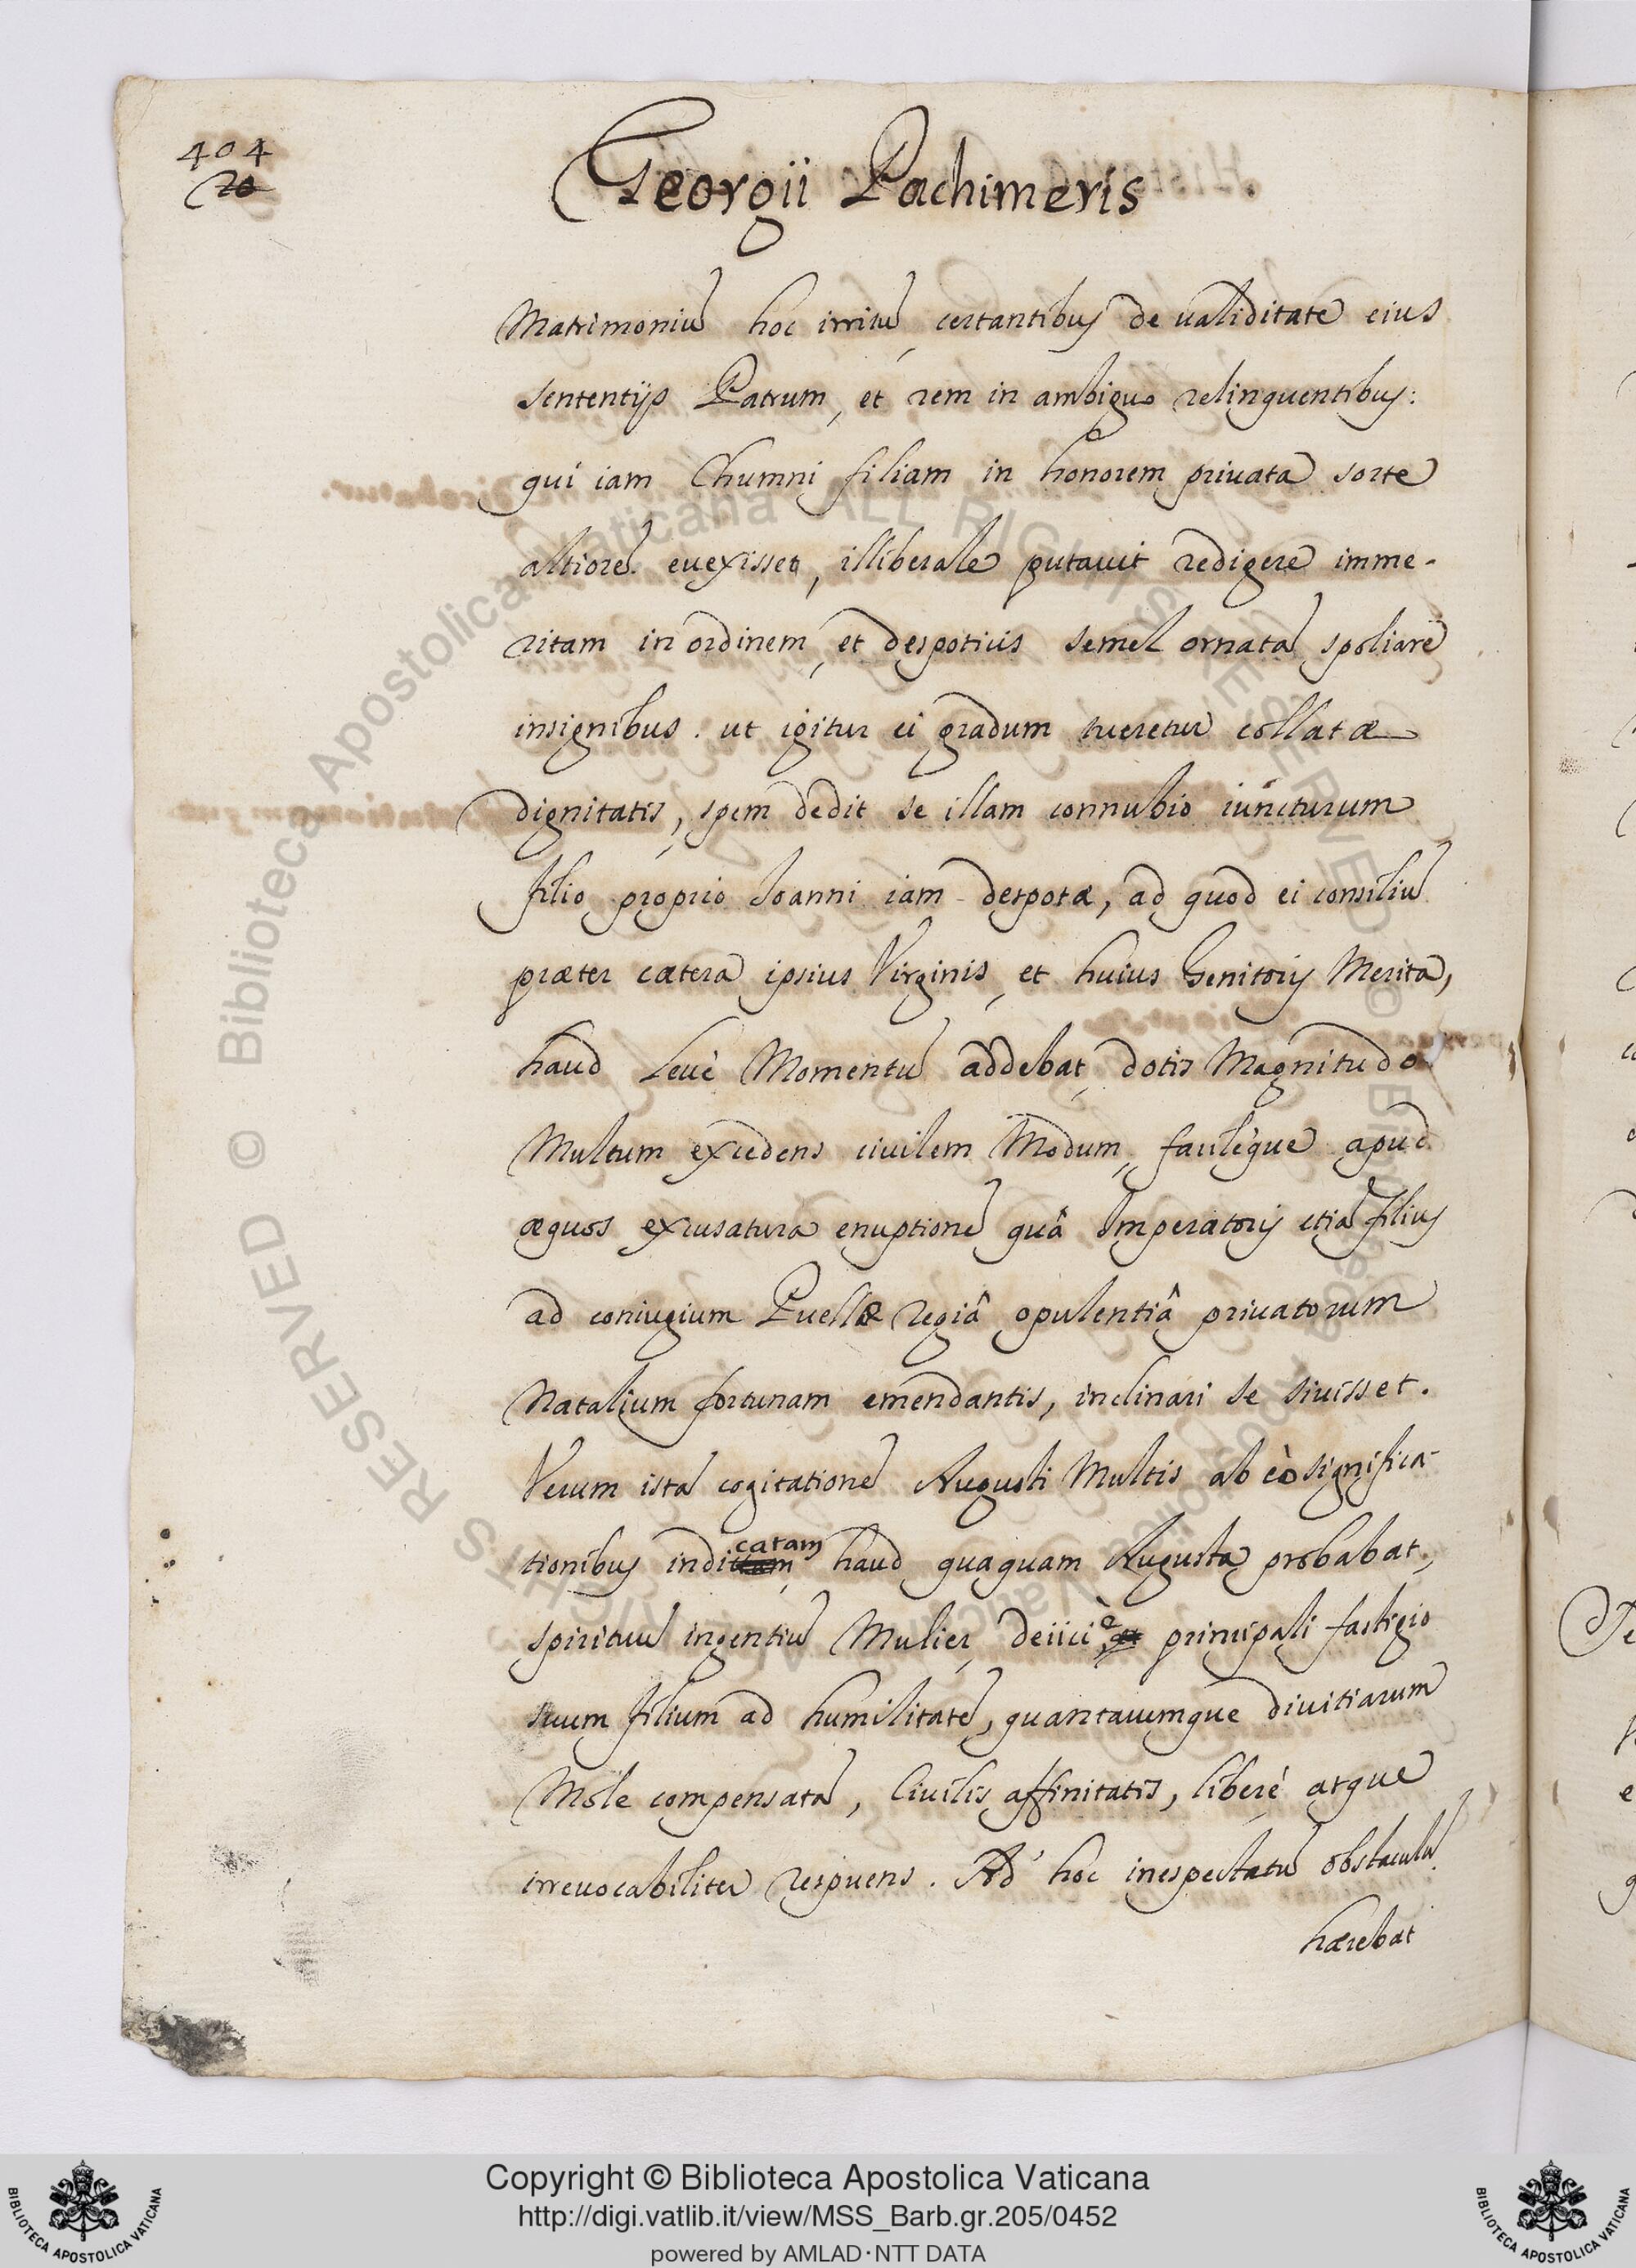 404
20
Georgii Pachimeris
Matrimoniũ hoc irritũ, certantibus de validitate eius
sententijs Patrum, et rem in ambiguo relinquentibus:
qui iam Chumni filiam in honorem privata sorte
altiorẽ evexisset, illiberale putavit redigere imme-
ritam in ordinem, et despoticis semel ornatã spoliare
insignibus. ut igitur ei gradum tueretur collatæ
dignitatis, spem dedit se illam connubio iuncturum
filio proprio Ioanni iam despotæ, ad quod ei consiliũ
præter cætera ipsius Virginis, et huius Genitoris Merita,
haud leve Momentũ addebat, dotis Magnitudo
Multum excedens civilem Modum, facilèque apud
æquos excusatura eruptionẽ quâ Imperatoris etiã filius
ad coniugium Puellæ regiâ opulentiâ privatorum
Natalium fortunam emendantis, inclinari se sivisset.
Verum istã cogitationẽ Augusti Multis ab eò significa-
tionibus indicatam, haud quaquam Augusta probabat,
spirituũ ingentiũ Mulier, deiici è principali fastigio
suum filium ad humilitatẽ, quantacumque divitiarum
Mole compensatã, Civilis affinitatis, liberè atque
irrevocabiliter respuens. Ad hoc inespectatũ obstaculũ
hærebat
Copyright © Biblioteca Apostolica Vaticana
http://digi.vatlib.it/view/MSS_Barb.gr.205/0452
powered by AMLAD·NTT DATA
BIBLIOTECA APOSTOLICA VATICANA
BIBLIOTECA APOSTOLICA VATICANA